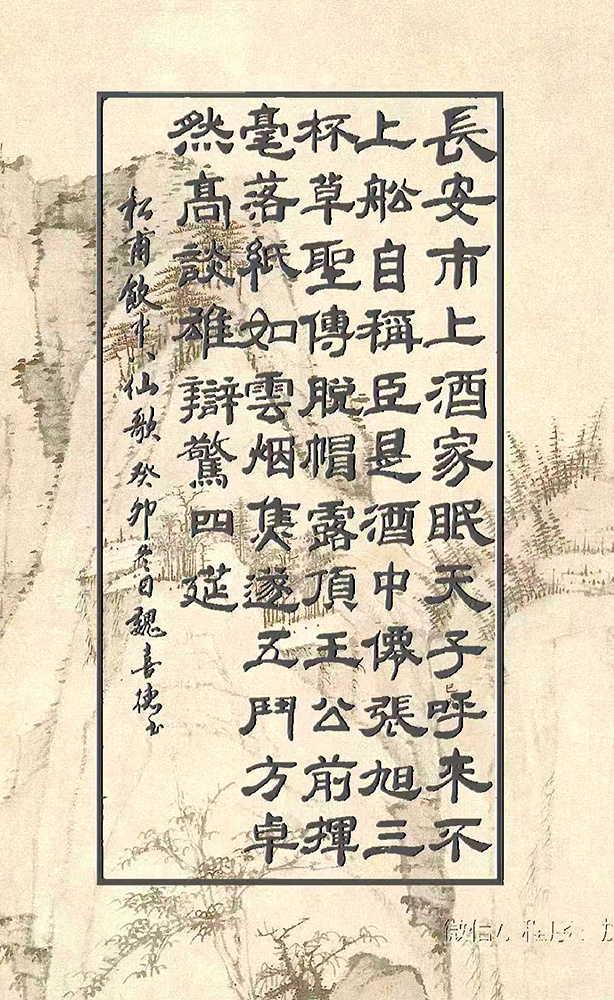 長安市上酒家眠天子呼來不
上船自稱臣是酒中僊張旭三
杯草聖傳脫帽露頂王公前揮
毫落紙如雲烟焦遂五鬥方卓
然高談雄辯驚四筵
杜甫飲中八仙歌癸卯冬日魏喜德书
微信小程序